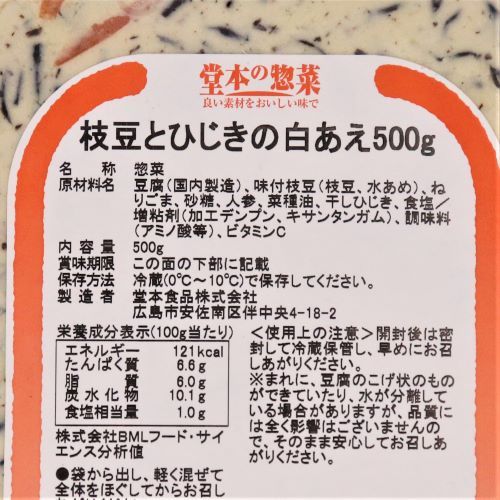 堂本の惣菜
良い素材をおいしい味で
枝豆とひじきの白あえ500g
名称 惣菜
原材料名 豆腐(国内製造)、味付枝豆(枝豆、水あめ)、ね
りごま、砂糖、人参、菜種油、干しひじき、食塩/
増粘剤(加工デンプン、キサンタンガム)、調味料
(アミノ酸等)、ビタミンC
内容量 500g
賞味期限 この面の下部に記載
保存方法 冷蔵(0℃~10℃)で保存してください。
製造者 堂本食品株式会社
広島市安佐南区伴中央4-18-2
栄養成分表示(100g当たり)
エネルギー 121kcal
たんぱく質 6.6g
脂質 6.0g
炭水化物 10.1g
食塩相当量 1.0g
株式会社BMLフード・サイ
エンス分析値
●袋から出し、軽く混ぜて
全体をほぐしてからお召し
<使用上の注意>開封後は密
封して冷蔵保管し、早めにお召
しあがりください。
※まれに、豆腐のこげ状のもの
ができていたり、水が分離して
いる場合がありますが、品質に
は全く影響はございませんの
で、そのまま安心してお召しあ
がりください。